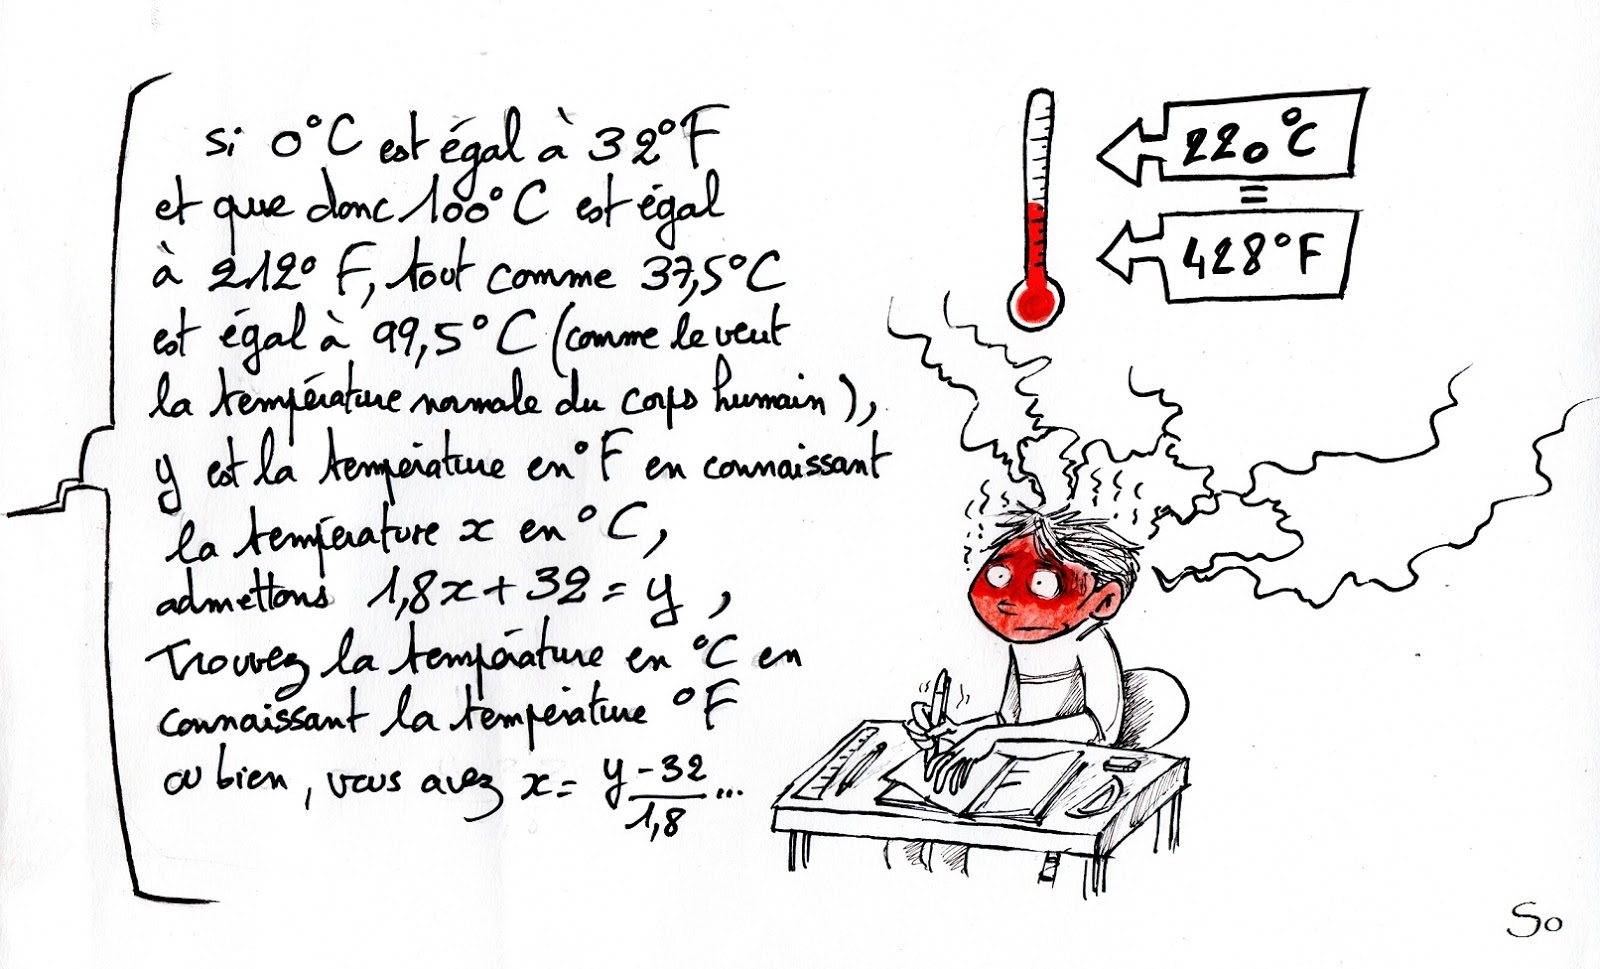 si 0°C est égal à 32°F
et que donc 100°C est égal
à 212° F, tout comme 37,5°C
est égal à 99,5°C (comme le veut
la température normale du corps humain),
y est la température en °F en connaissant
la température x en °C,
admettons 1,8x + 32 = y,
Trouvez la température en °C en
connaissant la température °F
ou bien, vous avez x = y - 32 / 1,8 ...
220°C
=
428°F
So